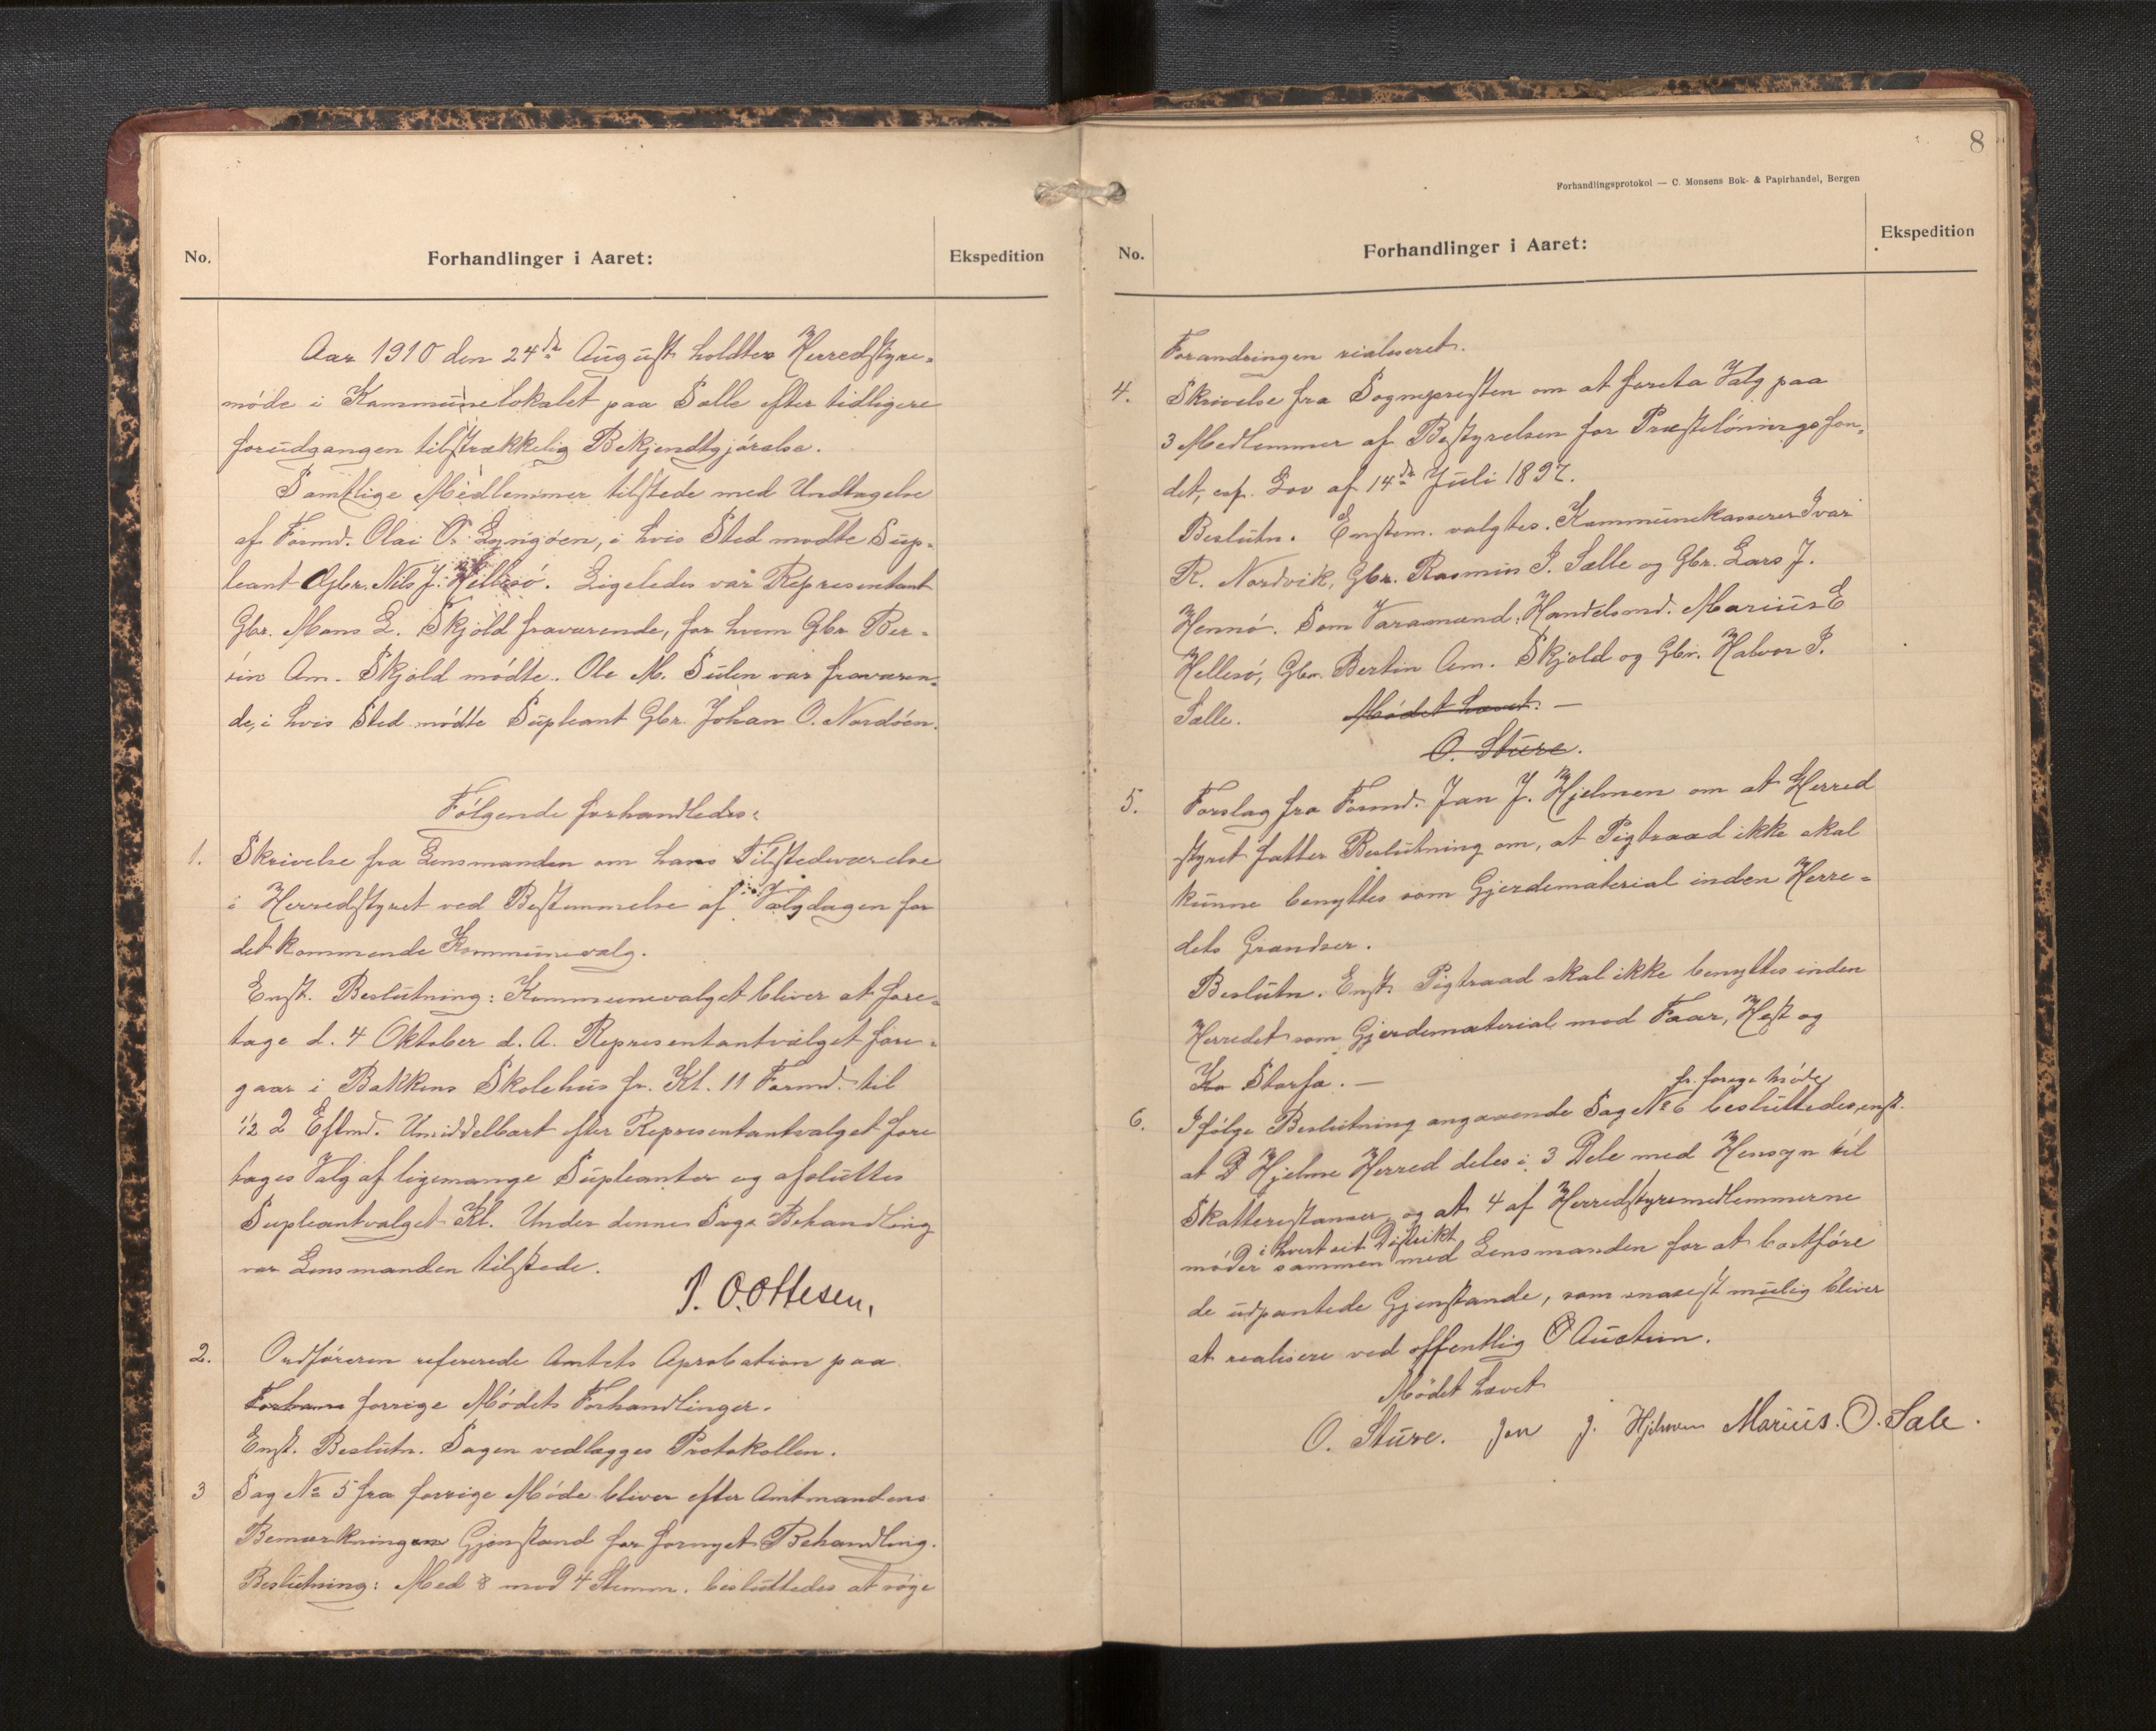 No.
Forhandlinger i Aaret:
Ekspedition
Aar 1910 den 24de August holdtes Herredstyre-
møde i Kommunelokalet paa Sælle efter tidligere
forudgangen tilstrækkelig Bekjendtgjørelse.
Samtlige Medlemmer tilstede med Undtagelse
af Formd. Olai O. Lyngøen, i hvis Sted mødte Sup-
leant Gbr. Nils J. Hellesø. Ligeledes var Representant
Gbr. Mons L. Skjold fraværende, for hvem Gbr Ber-
tin Am. Skjold mødte. Ole M. Sulen var fraværen-
de, i hvis Sted mødte Supleant Gbr. Johan O. Nordøen.
Følgende forhandledes:
1. Skrivelse fra Lensmanden om hans Tilstedeværelse
i Herredstyret ved Bestemmelse af Valgdagen for
det kommende Kommunevalg.
Enst. Beslutning: Kommunevalget bliver at fore-
tage d. 4 Oktober d. A. Representantvalget fore-
gaar i Bakkens Skolehus fr. Kl. 11 Formd. til
1/2 2 Eftmd. Umiddelbart efter Representantvalget fore
tages Valg af ligemange Supleanter og afsluttes
Supleantvalget Kl. Under denne Sags Behandling
var Lensmanden tilstede.
P. O. Ottesen,
2. Ordføreren refererede Amtets Aprobation paa
Forhans forrige Mødets Forhandlinger.
Enst. Beslutn. Sagen vedlægges Protokollen.
3 Sag No 5 fra forrige Møde bliver efter Amtmandens
Bemærkningen Gjenstand for fornyet Behandling.
Beslutning: Med 8 mod 4 Stemm. besluttedes at søge
8
Forhandlingsprotokol — C. Monsens Bok- & Papirhandel, Bergen
No.
Forhandlinger i Aaret:
Ekspedition
Forandringen rialiseret.
4. Skrivelse fra Sognepresten om at foreta Valg paa
3 Medlemmer af Bestyrelsen for Præstelønningsfon-
det, csf. Lov af 14de Juli 1897.
Beslutn. Enstem. valgtes. Kommunekasserer Ivar
R. Nordvik, Gbr. Rasmus I. Sælle og Gbr. Lars J.
Hennø. Som Varamænd: Handelsmd. Marius E
Hellesø, Gbr. Bertin Am. Skjold og Gbr. Halvor I.
Sælle. Mødet hævet. —
O. Sture.
5. Forslag fra Formd. Jan J. Hjelmen om at Herred
styret fatter Beslutning om, at Pigtraad ikke skal
kunne benyttes som Gjerdematerial inden Herre-
dets Grændser.
Beslutn. Enst. Pigtraad skal ikke benyttes inden
Herredet som Gjerdematerial mod Faar, Hest og
Ko Storfæ. —
fr. forige Møde
6. Ifølge Beslutning angaaende Sag No 6 besluttedes, enst.
at Hjelme Herred deles i 3 Dele med Hensyn til
Skatterestanser, og at 4 af Herredstyremedlemmerne
i hvert sit Distrikt
møder sammen med Lensmanden for at bortføre
de udpantede Gjenstande, som snarest mulig bliver
at realisere ved offentlig Auction.
Mødet hævet
O. Sture. Jan J. Hjelmen Marius. O. Sæle.